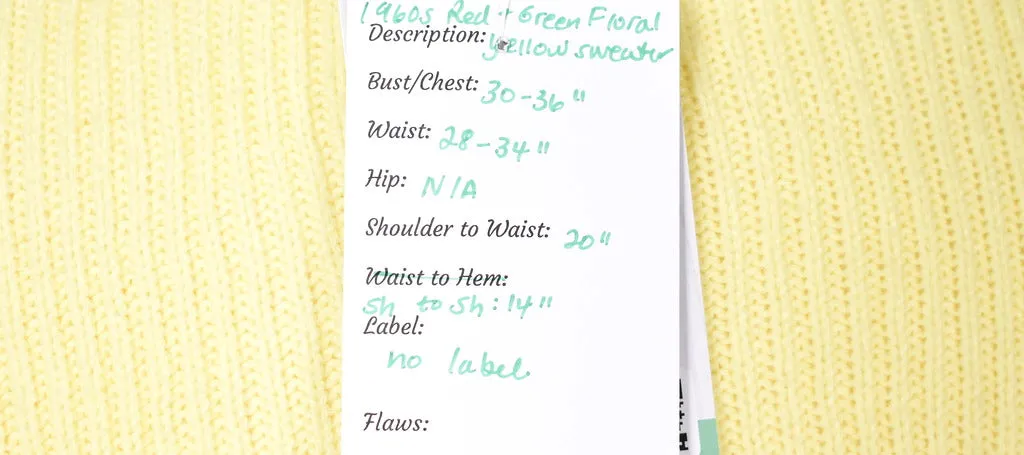 1960s Red + Green Floral
Description: yellow sweater
Bust/Chest: 30-36"
Waist: 28-34"
Hip: N/A
Shoulder to Waist: 20"
Waist to Hem:
Sh to Sh: 14"
Label:
no label
Flaws: